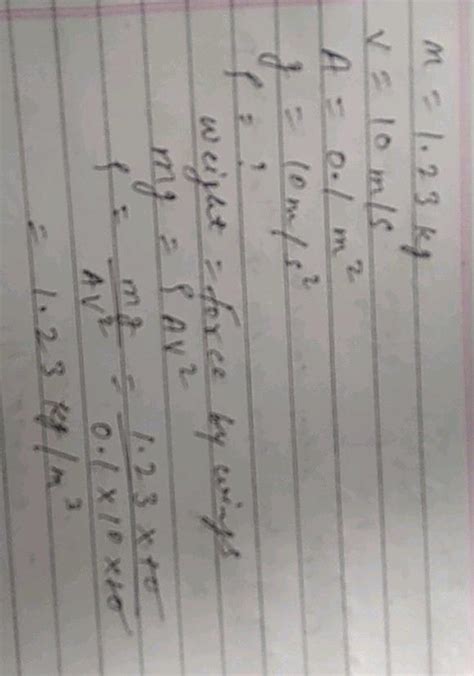 m = 1.23 kg
v = 10 m/s
A = 0.1 m²
g = 10 m/s²
ρ = ?
weight = force by wings
mg = ρ AV²
ρ = mg / AV² = 1.23 x 10 / 0.1 x 10 x 10
= 1.23 kg/m³